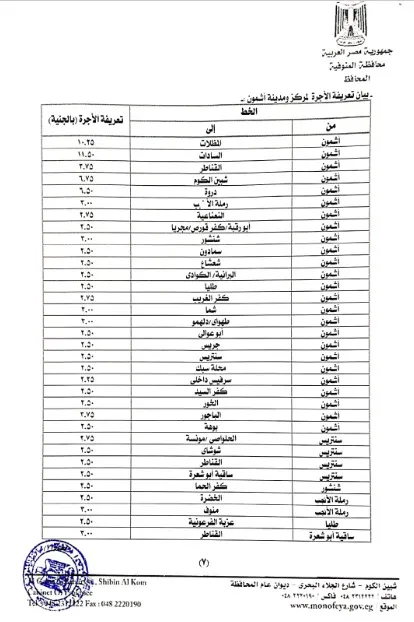 جمهورية مصر العربية
محافظة المنوفية
المحافظ
ـ بيان تعريفة الأجرة لمركز ومدينة أشمون :ـ
الخط تعريفة الأجرة (بالجنية)
من إلى
أشمون المظلات ١٠.٢٥
أشمون السادات ١١.٥٠
أشمون القناطر ٣.٧٥
أشمون شبين الكوم ٦.٧٥
أشمون دروة ٦.٥٠
أشمون رملة ٣.٠٠
أشمون النعناعية ٢.٧٥
أشمون أبورقبة/كفر قورص/مجريا ٢.٥٠
أشمون شنشور ٣.٠٠
أشمون سمادون ٢.٥٠
أشمون شعشاع ٢.٥٠
أشمون البرانية/الكوادى ٢.٥٠
أشمون طليا ٢.٥٠
أشمون كفر الغريب ٢.٧٥
أشمون شما ٣.٠٠
أشمون طهواى/دلهمو ٣.٠٠
أشمون ابو عوالى ٢.٥٠
أشمون جريس ٢.٥٠
أشمون سنتريس ٢.٥٠
أشمون محلة سبك ٢.٥٠
أشمون سرفيس داخلى ٢.٢٥
أشمون كفر السيد ٢.٥٠
أشمون الخور ٢.٥٠
أشمون الباجور ٣.٧٥
أشمون بوهة ٢.٥٠
سنتريس الحلواصى/مونسة ٢.٧٥
سنتريس شوشاى ٢.٥٠
سنتريس القناطر ٢.٥٠
سنتريس ساقية أبو شعرة ٢.٥٠
شنشور كفر الحما ٢.٥٠
رملة الأنجب الخضرة ٢.٥٠
رملة الأنجب منوف ٣.٠٠
طليا عزبة الفرعونية ٢.٥٠
ساقية أبو شعرة القناطر ٣.٠٠
(٧)
شبين الكوم - شارع الجلاء البحرى - ديوان عام المحافظة
هاتف: ٠٤٨ ٢٣١٢٢٢٢ فاكس: ٠٤٨ ٢٢٢٠١٩٠
www.monofeya.gov.eg
Shibin Al Kom
Fax : 048 2220190